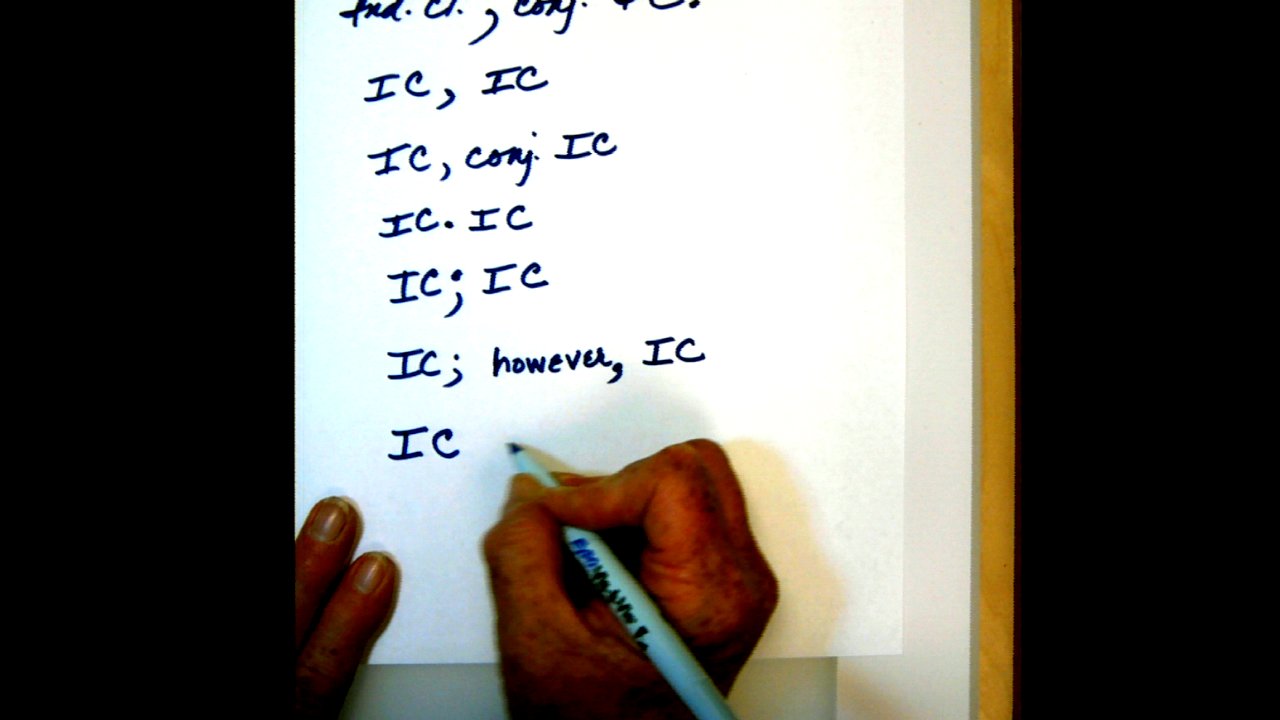 Ind. cl., conj. IC.
IC, IC
IC, conj. IC
IC. IC
IC; IC
IC; however, IC
IC